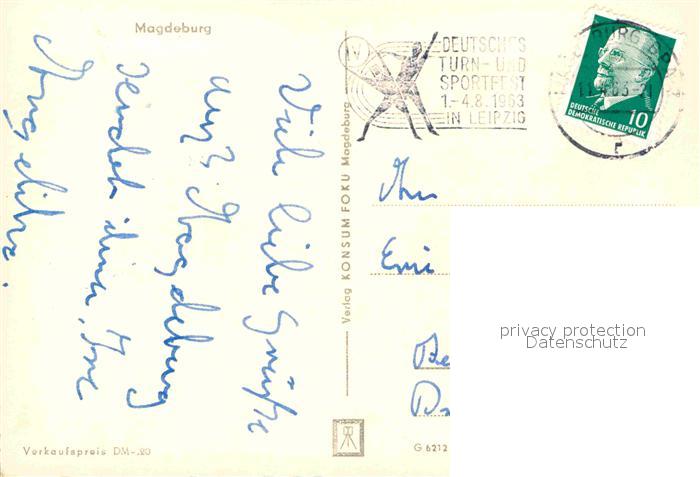 Magdeburg
Viele liebe Grüße
aus Magdeburg
sendet Ihnen, Ihre
Angelika.
Verkaufspreis DM-,20
Verlag KONSUM FOKU Magdeburg
IV
DEUTSCHES
TURN- UND
SPORTFEST
1.-4.8.1963
IN LEIPZIG
10
DEUTSCHE
DEMOKRATISCHE REPUBLIK
privacy protection
Datenschutz
G 6212